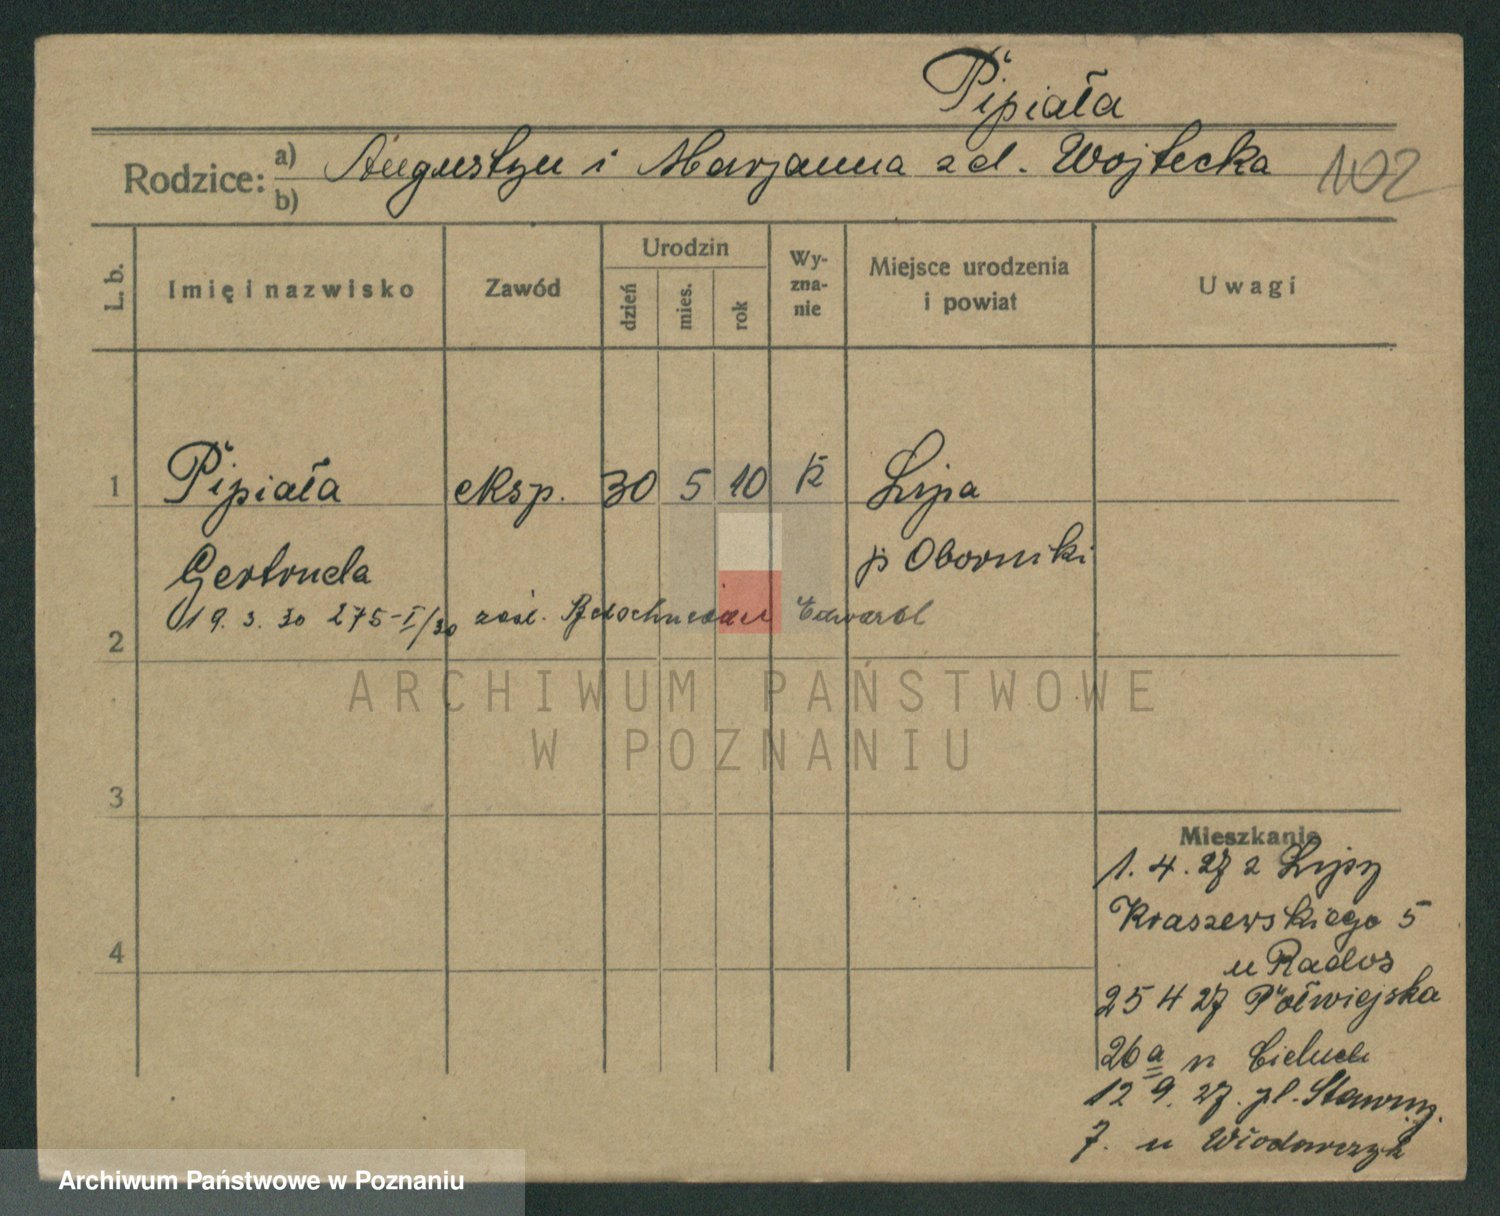 Pipiała
Rodzice: a) b) Augustyn i Marjanna zd. Wojtecka 102
L. b. Imię i nazwisko Zawód Urodzin dzień mies. rok Wy-zna-nie Miejsce urodzenia i powiat Uwagi
1 Pipiała eksp. 30 5 10 k Lipa
Gertruda p Oborniki
19. 3. 30 275-I/30 zaśl. Edward
2
ARCHIWUM PAŃSTWOWE
W POZNANIU
3
Mieszkanie
1. 4. 27 z Lipy
Kraszewskiego 5
4
u Rados
25 4 27 Półwiejska
26a u
12 9. 27. pl.
7. u Włodarczyk
Archiwum Państwowe w Poznaniu